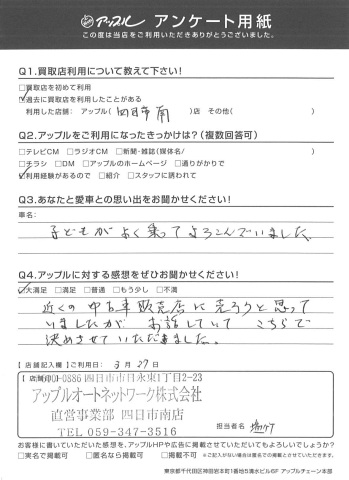 アップル アンケート用紙
この度は当店をご利用いただきありがとうございました。
Q1.買取店利用について教えて下さい!
□買取店を初めて利用
☑過去に買取店を利用したことがある
利用した店舗: アップル( 四日市南 )店 その他( )
Q2.アップルをご利用になったきっかけは?(複数回答可)
□テレビCM □ラジオCM □新聞・雑誌(媒体名/ )
□チラシ □DM □アップルのホームページ □通りがかりで
☑利用経験があるので □紹介 □スタッフに誘われて
Q3.あなたと愛車との思い出をお聞かせください!
車名:
子どもがよく乗ってよろこんでいました。
Q4.アップルに対する感想をぜひお聞かせください!
☑大満足 □満足 □普通 □もう少し □不満
近くの中古車販売店に売ろうと思って
いましたが お話していて こちらで
決めさせていただきました。
【店舗記入欄】ご利用日: 3月27日
【店舗印】0-0886 四日市市日永東1丁目2-23
アップルオートネットワーク株式会社
直営事業部 四日市南店
TEL 059-347-3516
担当者名:
お客様に書いていただいた感想を、アップルHPや広告に掲載させていただいてもよろしいでしょうか?
□実名で掲載可 □匿名なら掲載可 □不可
※ご記入がない場合は匿名での掲載とさせていただきます。
東京都千代田区神田岩本町1番地5清水ビル6F アップルチェーン本部